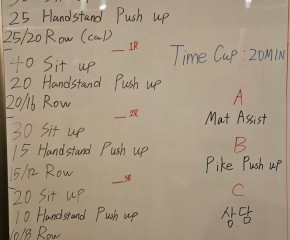 25 Handstand Push up
25/20 Row (cal)
1R
40 Sit up
20 Handstand Push up
20/16 Row
2R
30 Sit up
15 Handstand Push up
15/12 Row
3R
20 Sit up
10 Handstand Push up
10/8 Row
Time Cap : 20MIN
A
Mat Assist
B
Pike Push up
C
상담